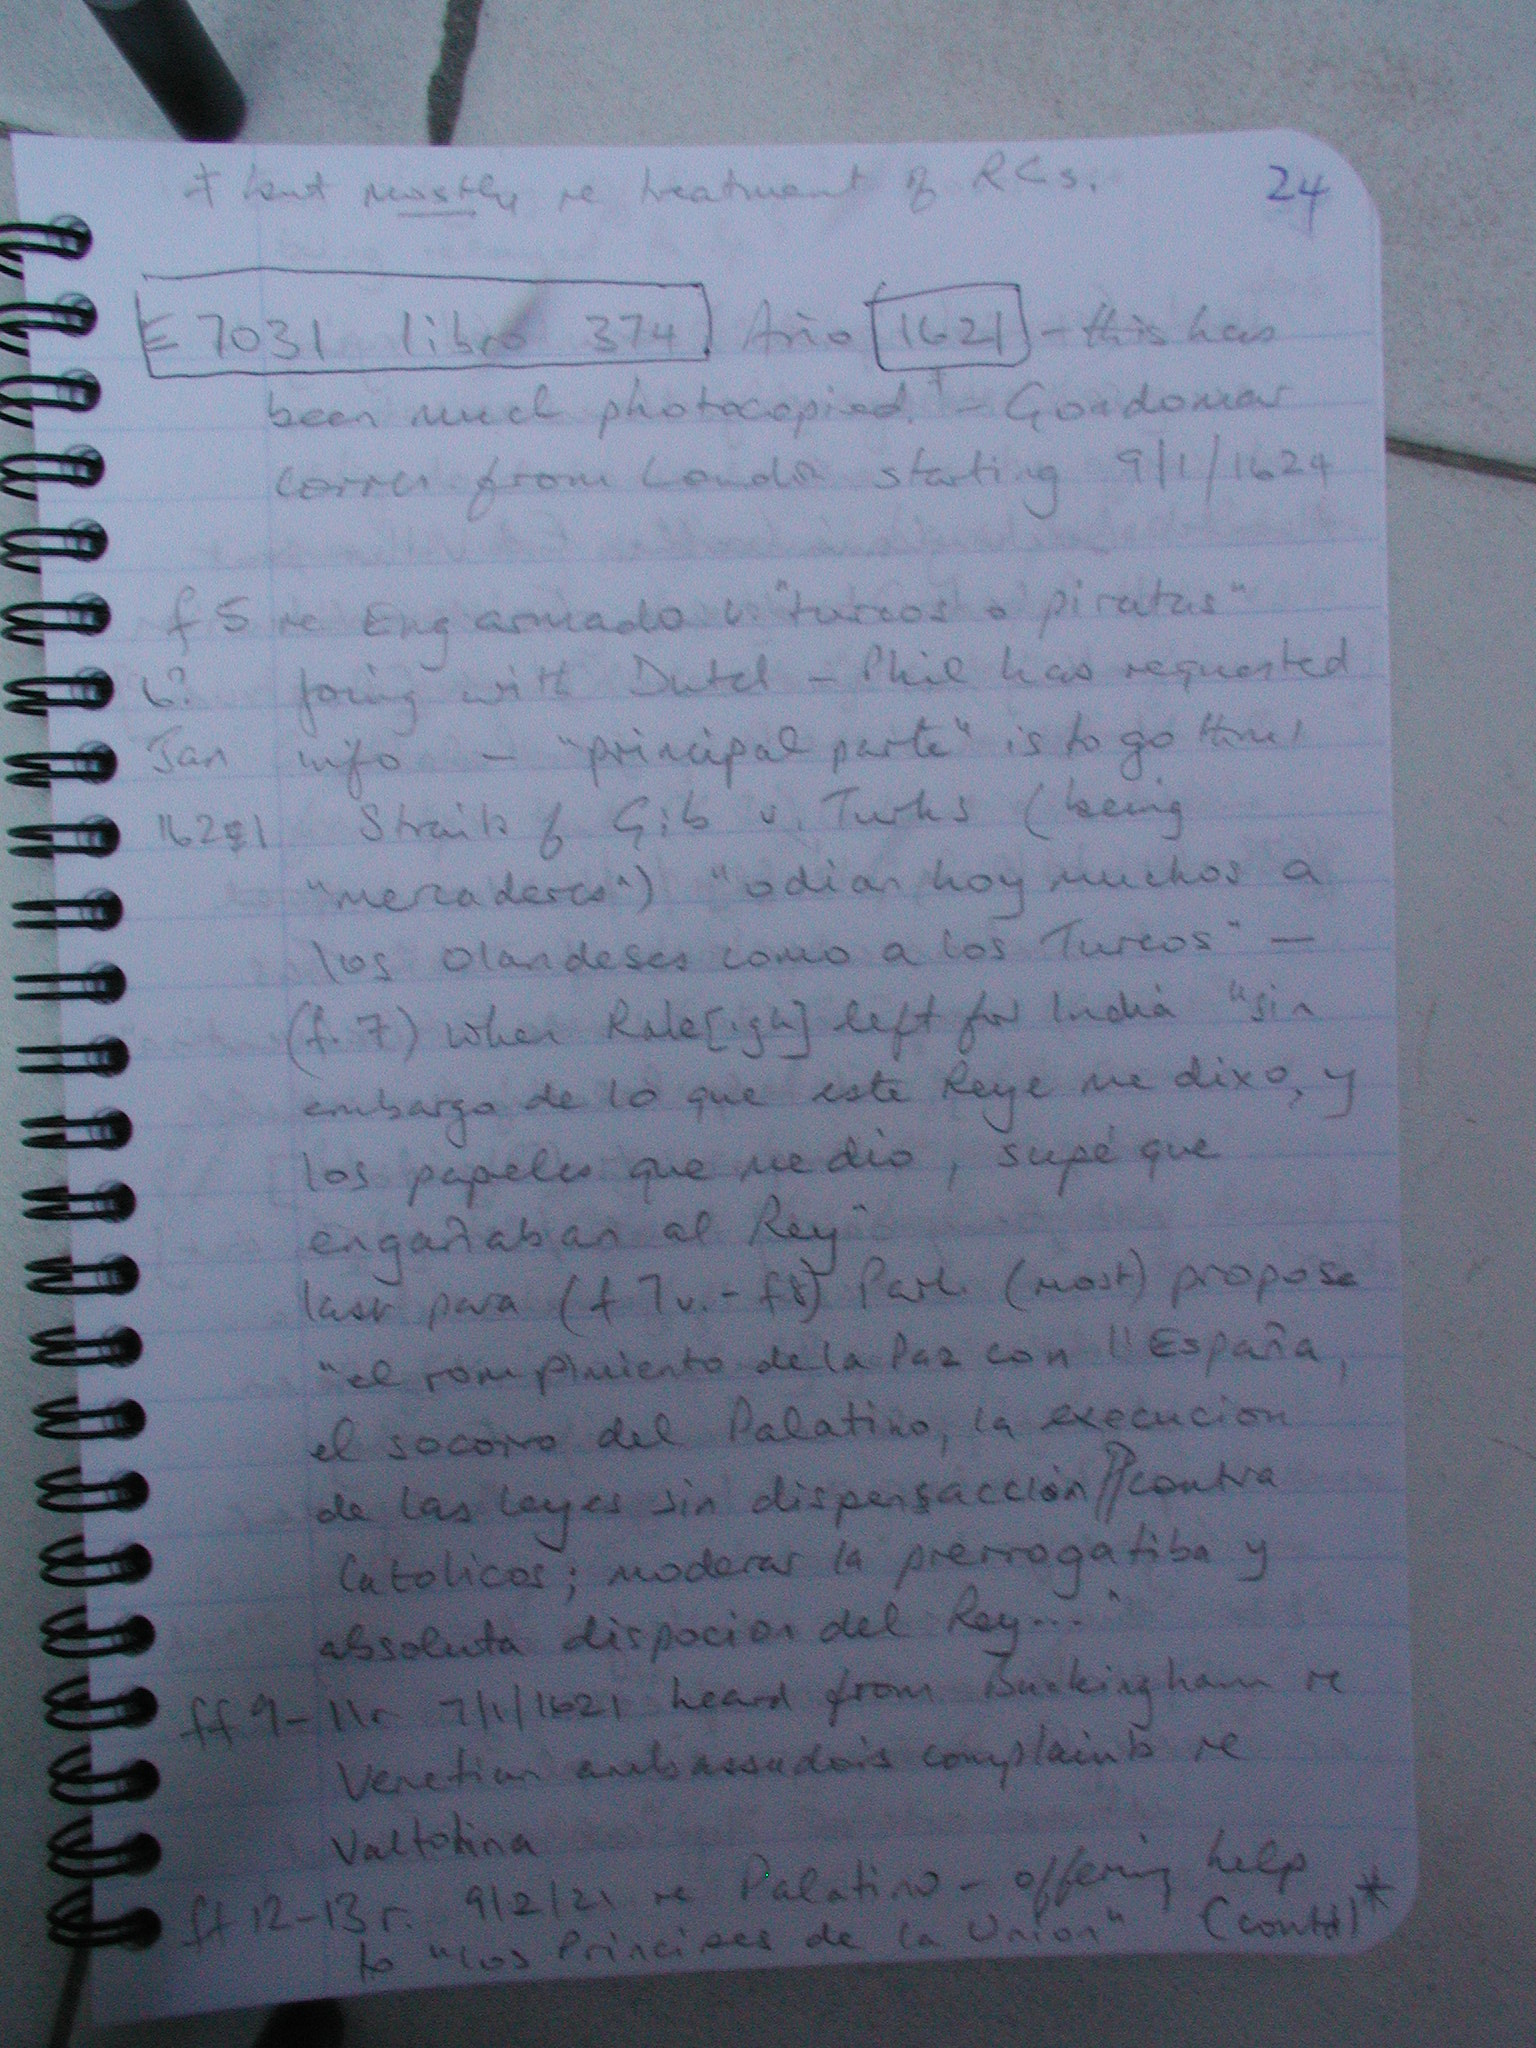 + but mostly re treatment of RCs.
24
E 7031 libro 374 Año 1621 - this has
been much photocopied.+ - Gondomar
corres from London starting 9/1/1624
f 5 re Eng armada v. "turcos o piratas"
6? joing with Dutch - Phil has requested
Jan info - "principal parte" is to go thro'
1621 Straits of Gib v. Turks (being
"mercaderes") "odian hoy muchos a
los olandeses como a los Turcos" -
(f. 7) when Rale[igh] left for India "sin
embargo de lo que este Reye me dixo, y
los papeles que me dio, supé que
engañaban al Rey"
last para (f 7v. - f8) Parl. (most) propose
"el rompimiento de la Paz con l'España,
el socorro del Palatino, la execucion
de las leyes sin dispensacción contra
Catolicos; moderar la prerrogatiba y
absoluta dispocion del Rey...."
ff 9-11r 7/1/1621 heard from Buckingham re
Venetian ambassador's complaints re
Valtolina
ff 12-13r. 9/2/21 re Palatino - offering help
to "los Principes de la Union" (contd)*